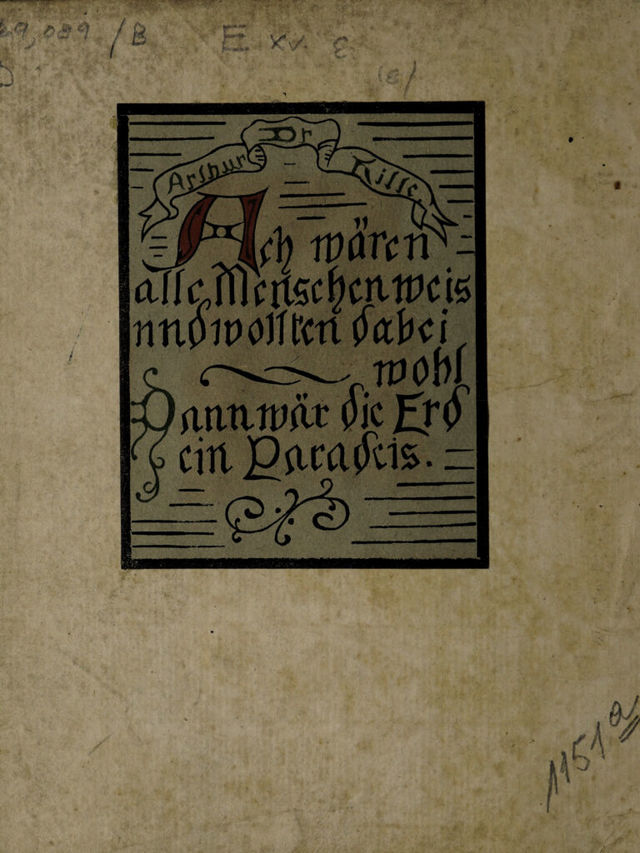 E xv. ε
Arthur Dr Kille
Ach wären
alle Menschen weis
und wollten dabei
wohl
Dann wär die Erd
ein Paradeis.
1151a